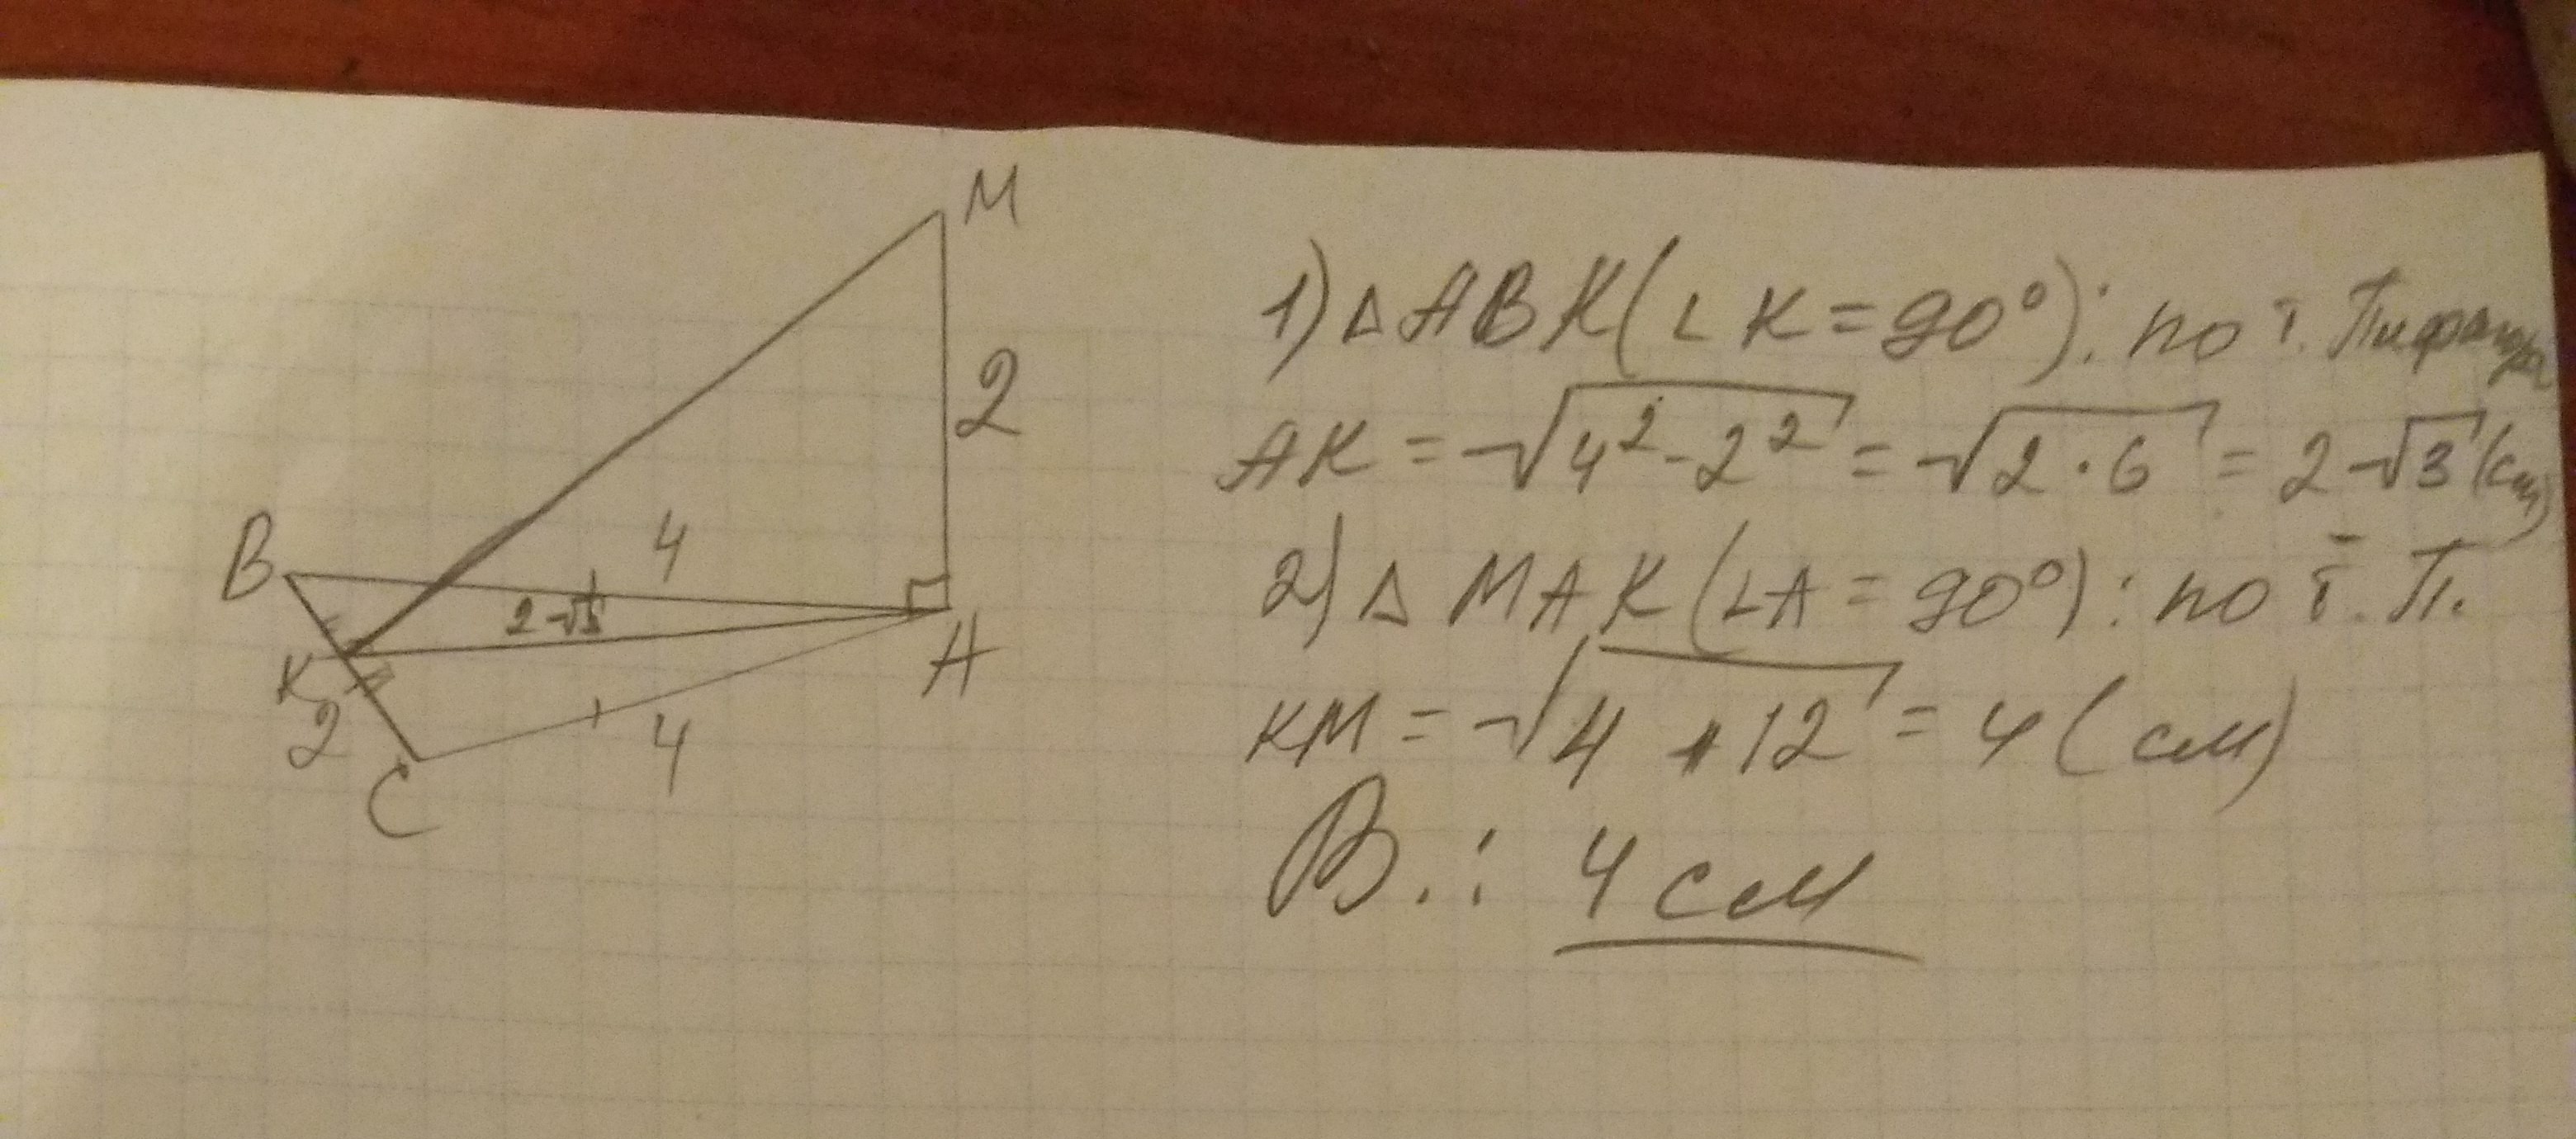 M
2
B
4
2√3
K
A
2
4
C
1) △ABK(∠K=90°): по т. Пифагора
AK = √4²-2² = √2·6 = 2√3 (см)
2) △MAK(∠A=90°): по т. П.
KM = √4+12 = 4 (см)
В.: 4 см